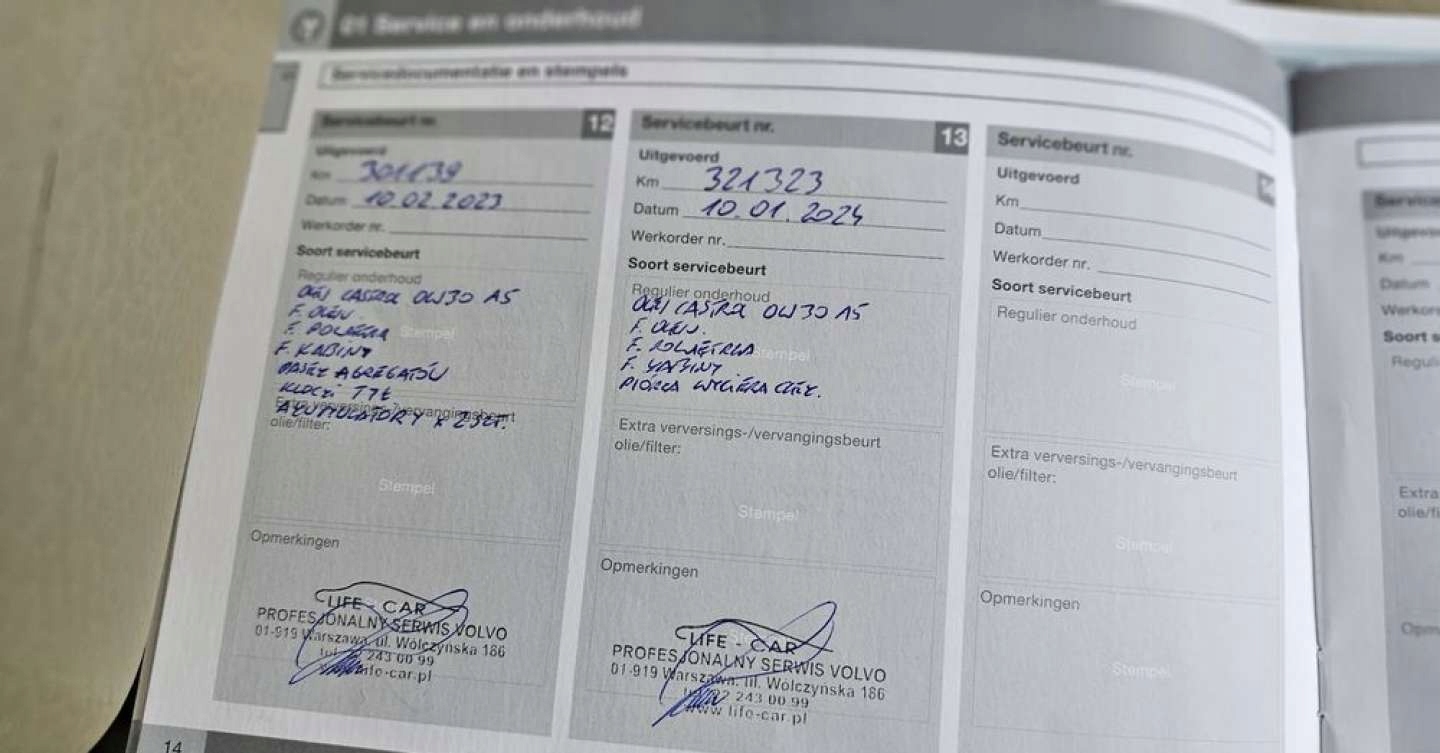 01 Service en onderhoud
Servicedocumentatie en stempels
Servicebeurt nr. 12
Uitgevoerd
Km 301139
Datum 10.02.2023
Werkorder nr.
Soort servicebeurt
Regulier onderhoud
OLEJ CASTROL 0W30 A5
F. OLEJU.
F. POWIETRZA
Stempel
F. KABINY
PASEK AGREGATÓW
KLOCKI TYŁ
AKUMULATORY x 2 SZT.
Extra verversings-/vervangingsbeurt
olie/filter:
Stempel
Opmerkingen
LIFE - CAR
PROFESJONALNY SERWIS VOLVO
01-919 Warszawa, ul. Wólczyńska 186
tel. 22 243 00 99
life-car.pl
Servicebeurt nr. 13
Uitgevoerd
Km 321323
Datum 10.01.2024
Werkorder nr.
Soort servicebeurt
Regulier onderhoud
OLEJ CASTROL 0W30 A5
F. OLEJU.
F. POWIETRZA
Stempel
F. KABINY.
PIÓRA WYCIERACZEK.
Extra verversings-/vervangingsbeurt
olie/filter:
Stempel
Opmerkingen
LIFE - CAR
PROFESJONALNY SERWIS VOLVO
01-919 Warszawa, ul. Wólczyńska 186
tel. 22 243 00 99
www.life-car.pl
Servicebeurt nr.
Uitgevoerd
Km
Datum
Werkorder nr.
Soort servicebeurt
Regulier onderhoud
Stempel
Extra verversings-/vervangingsbeurt
olie/filter:
Stempel
Opmerkingen
Stempel
14